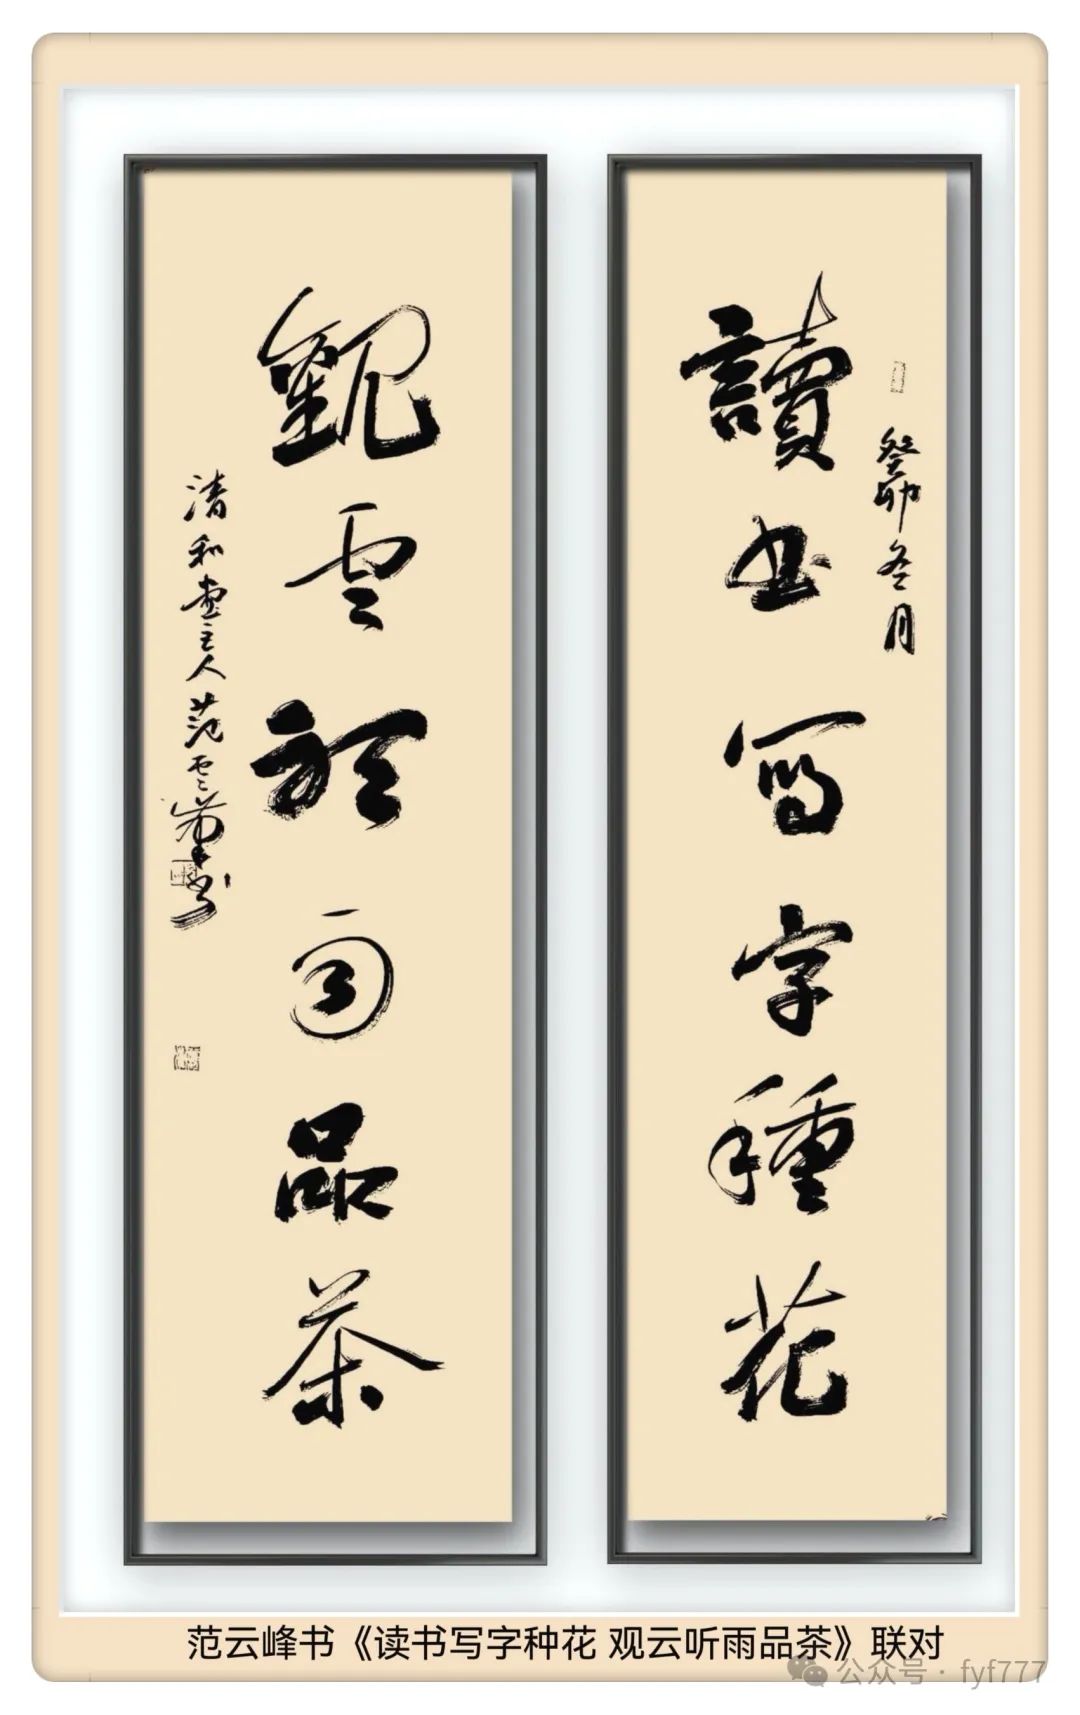 癸卯冬月
讀書寫字種花
觀雲聽雨品茶
清和堂主人范雲峯书
范云峰书《读书写字种花 观云听雨品茶》联对
公众号 · fyf777